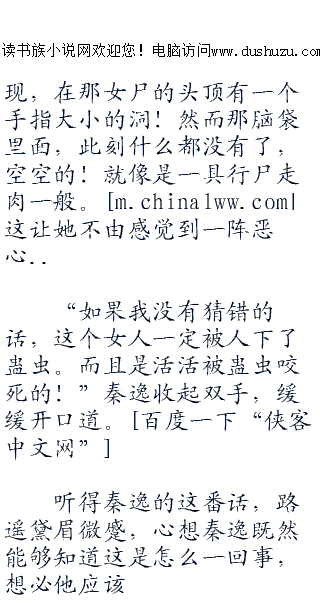 读书族小说网欢迎您！电脑访问www.dushuzu.com
现，在那女尸的头顶有一个
手指大小的洞！然而那脑袋
里面，此刻什么都没有了，
空空的！就像是一具行尸走
肉一般。[m.china1ww.com|
这让她不由感觉到一阵恶
心..
“如果我没有猜错的
话，这个女人一定被人下了
蛊虫。而且是活活被蛊虫咬
死的！”秦逸收起双手，缓
缓开口道。[百度一下“侠客
中文网”]
听得秦逸的这番话，路
遥黛眉微蹙，心想秦逸既然
能够知道这是怎么一回事，
想必他应该